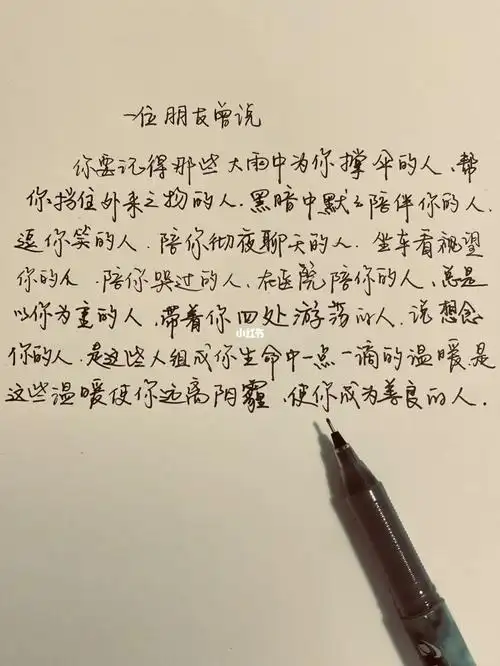 一位朋友曾说
你要记得那些大雨中为你撑伞的人,帮
你挡住外来之物的人.黑暗中默々陪伴你的人.
逗你笑的人.陪你彻夜聊天的人.坐车看视望
你的人.陪你哭过的人,在医院陪你的人,总是
以你为重的人,带着你四处游荡的人.说想念
你的人.是这些人组成你生命中一点一滴的温暖.是
这些温暖使你远离阴霾.使你成为善良的人.
小红书